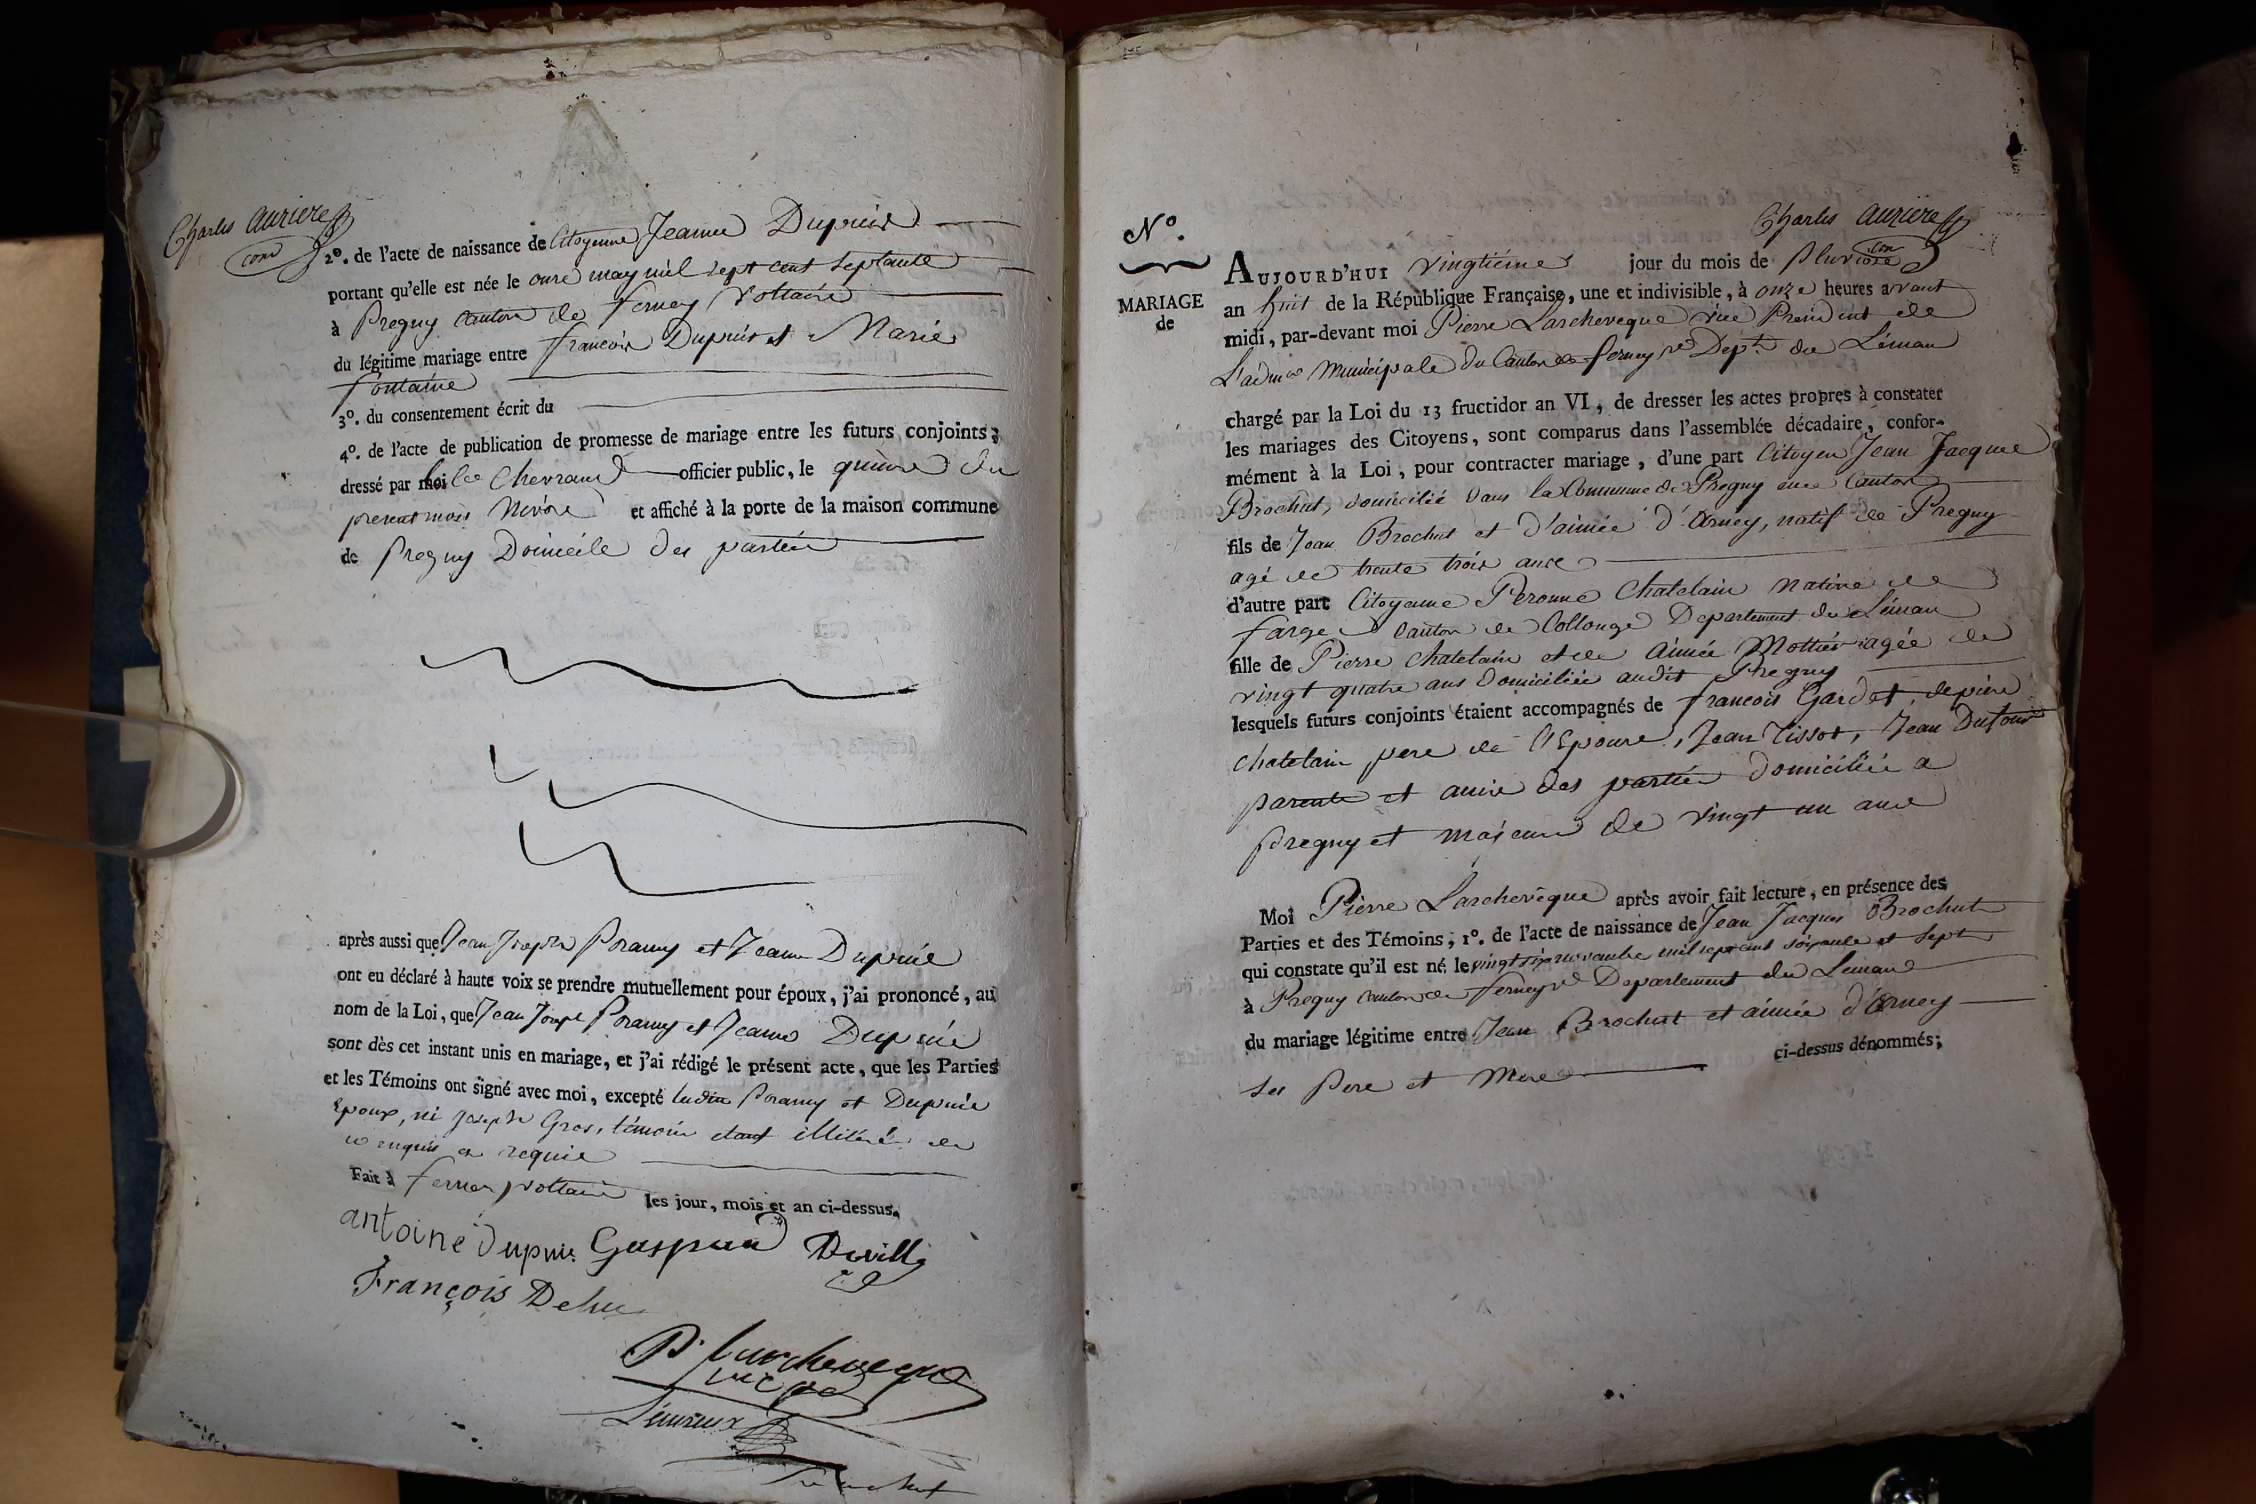 Charles auziere
com
2º. de l'acte de naissance de Citoyenne Jeanne Dupuis
portant qu'elle est née le onze may mil sept cent septante
à Pregny canton de ferney Voltaire
du légitime mariage entre francois Dupuis et Marie
fontaine
3º. du consentement écrit du
4º. de l'acte de publication de promesse de mariage entre les futurs conjoints;
dressé par moi Chevrand officier public, le quinze du
present mois Nivose et affiché à la porte de la maison commune
de Pregny Domicile des parties
après aussi que Jean Joseph Poramy et Jeanne Dupuis
ont eu déclaré à haute voix se prendre mutuellement pour époux, j'ai prononcé, au
nom de la Loi, que Jean Joseph Poramy et Jeanne Dupuis
sont dès cet instant unis en mariage, et j'ai rédigé le présent acte, que les Parties
et les Témoins ont signé avec moi, excepté ledits Poramy et Dupuis
Epoux, ni Joseph Gros, témoin etant illitéré de
ce enquis et requis
Fait à ferney voltaire les jour, mois et an ci-dessus.
antoine Dupuis Gaspard Deville
François Deluc
P. Larcheveque
vice
Nº.
Charles auziere
com
MARIAGE
de
AUJOURD'HUI vingtiéme jour du mois de pluviose
an huit de la République Française, une et indivisible, à onze heures avant
midi, par-devant moi Pierre Larcheveque vice President de
L'adm.on Municipale du Canton de ferney v.e Dep.t du Léman
chargé par la Loi du 13 fructidor an VI, de dresser les actes propres à constater
les mariages des Citoyens, sont comparus dans l'assemblée décadaire, confor-
mément à la Loi, pour contracter mariage, d'une part Citoyen Jean Jacque
Brochut, domicilié dans la Commune de Pregny en ce Canton
fils de Jean Brochut et d'aimée d'Orney, natif de Pregny
agé de trente trois ans
d'autre part Citoyenne Peronne Chatelain native de
farge canton de Collonge Departement du Léman
fille de Pierre chatelain et de aimée Mottier agée de
vingt quatre ans domiciliée audit Pregny
lesquels futurs conjoints étaient accompagnés de francois Gardet, de pierre
chatelain pere de l'Epouse, Jean Tissot, Jean Dufour
parents et amis des parties domiciliés a
pregny et majeurs de vingt un ans
Moi Pierre Larcheveque après avoir fait lecture, en présence des
Parties et des Témoins, 1º. de l'acte de naissance de Jean Jacques Brochut
qui constate qu'il est né le vingt six novembre mil sept cent soixante et sept
à Pregny canton de ferney v.e Departement du Leman
du mariage légitime entre Jean Brochut et aimée d'Orney
ci-dessus dénommés;
ses Pere et Mere